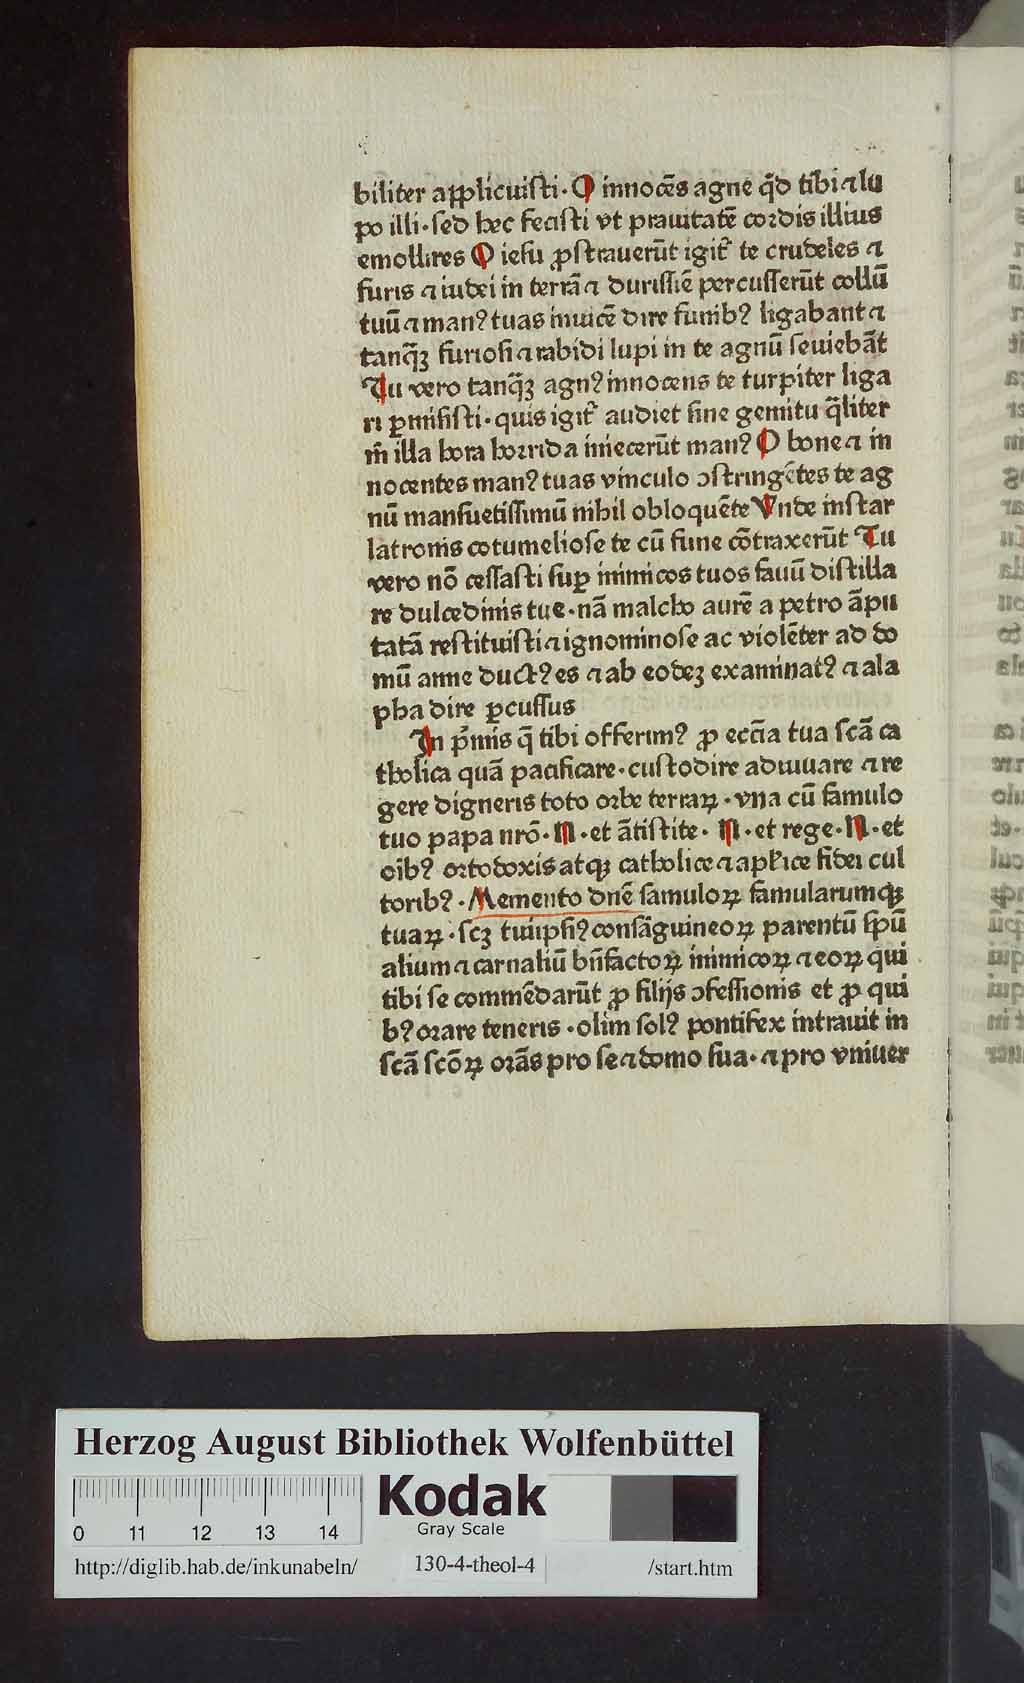 biliter applicuisti · O innocēs agne q̄d tibi ⁊ lu
po illi · sed hec fecisti vt prauitatē cordis illius
emollires O iesu ꝓstrauerūt igit᷑ te crudeles ⁊
furis ⁊ iudei in terrā ⁊ durissīe percusserūt collū
tuū ⁊ manꝰ tuas inuicē dire funibꝰ ligabant ⁊
tanq̄ꝫ furiosi ⁊ rabidi lupi in te agnū seuiebāt
Tu vero tanq̄ꝫ agnꝰ innocens te turpiter liga
ri ꝑmisisti · quis igit᷑ audiet sine gemitu q̄liter
in̄ illa hora horrida iniecerūt manꝰ O bone ⁊ in
nocentes manꝰ tuas vinculo ↄstringētes te ag
nū mansuetissimū nihil obloquēte Vnde instar
latronis cotumeliose te cū fune cōtraxerūt Tu
vero nō cessasti suꝑ inimicos tuos fauū distilla
re dulcedinis tue · nā malcho aurē a petro āpu
tatā restituisti ⁊ ignominose ac violēter ad do
mū anne ductꝰ es ⁊ ab eodeꝫ examinatꝰ ⁊ ala
pha dire ꝑcussus
In p̄mis q̄ tibi offerimꝰ ꝓ eccīa tua scā ca
tholica quā pacificare · custodire adiuuare ⁊ re
gere digneris toto orbe terraꝝ · vna cū famulo
tuo papa nrō · N · et ātistite · N · et rege · N · et
oibꝰ ortodoxis atqꝫ catholice ⁊ apl̄ice fidei cul
toribꝰ · Memento dn̄e famuloꝝ famularumqꝫ
tuaꝝ · scꝫ tuiipsiꝰ consāguineoꝝ parentū spū
alium ⁊ carnaliū bn̄factoꝝ inimicoꝝ ⁊ eoꝝ qui
tibi se commēdarūt ꝓ filijs ↄfessionis et ꝓ qui
bꝰ orare teneris · olim solꝰ pontifex intrauit in
scā scōꝝ orās pro se ⁊ domo sua · ⁊ pro vniuer
Herzog August Bibliothek Wolfenbüttel
0 11 12 13 14
Kodak
Gray Scale
http://diglib.hab.de/inkunabeln/ 130-4-theol-4 /start.htm